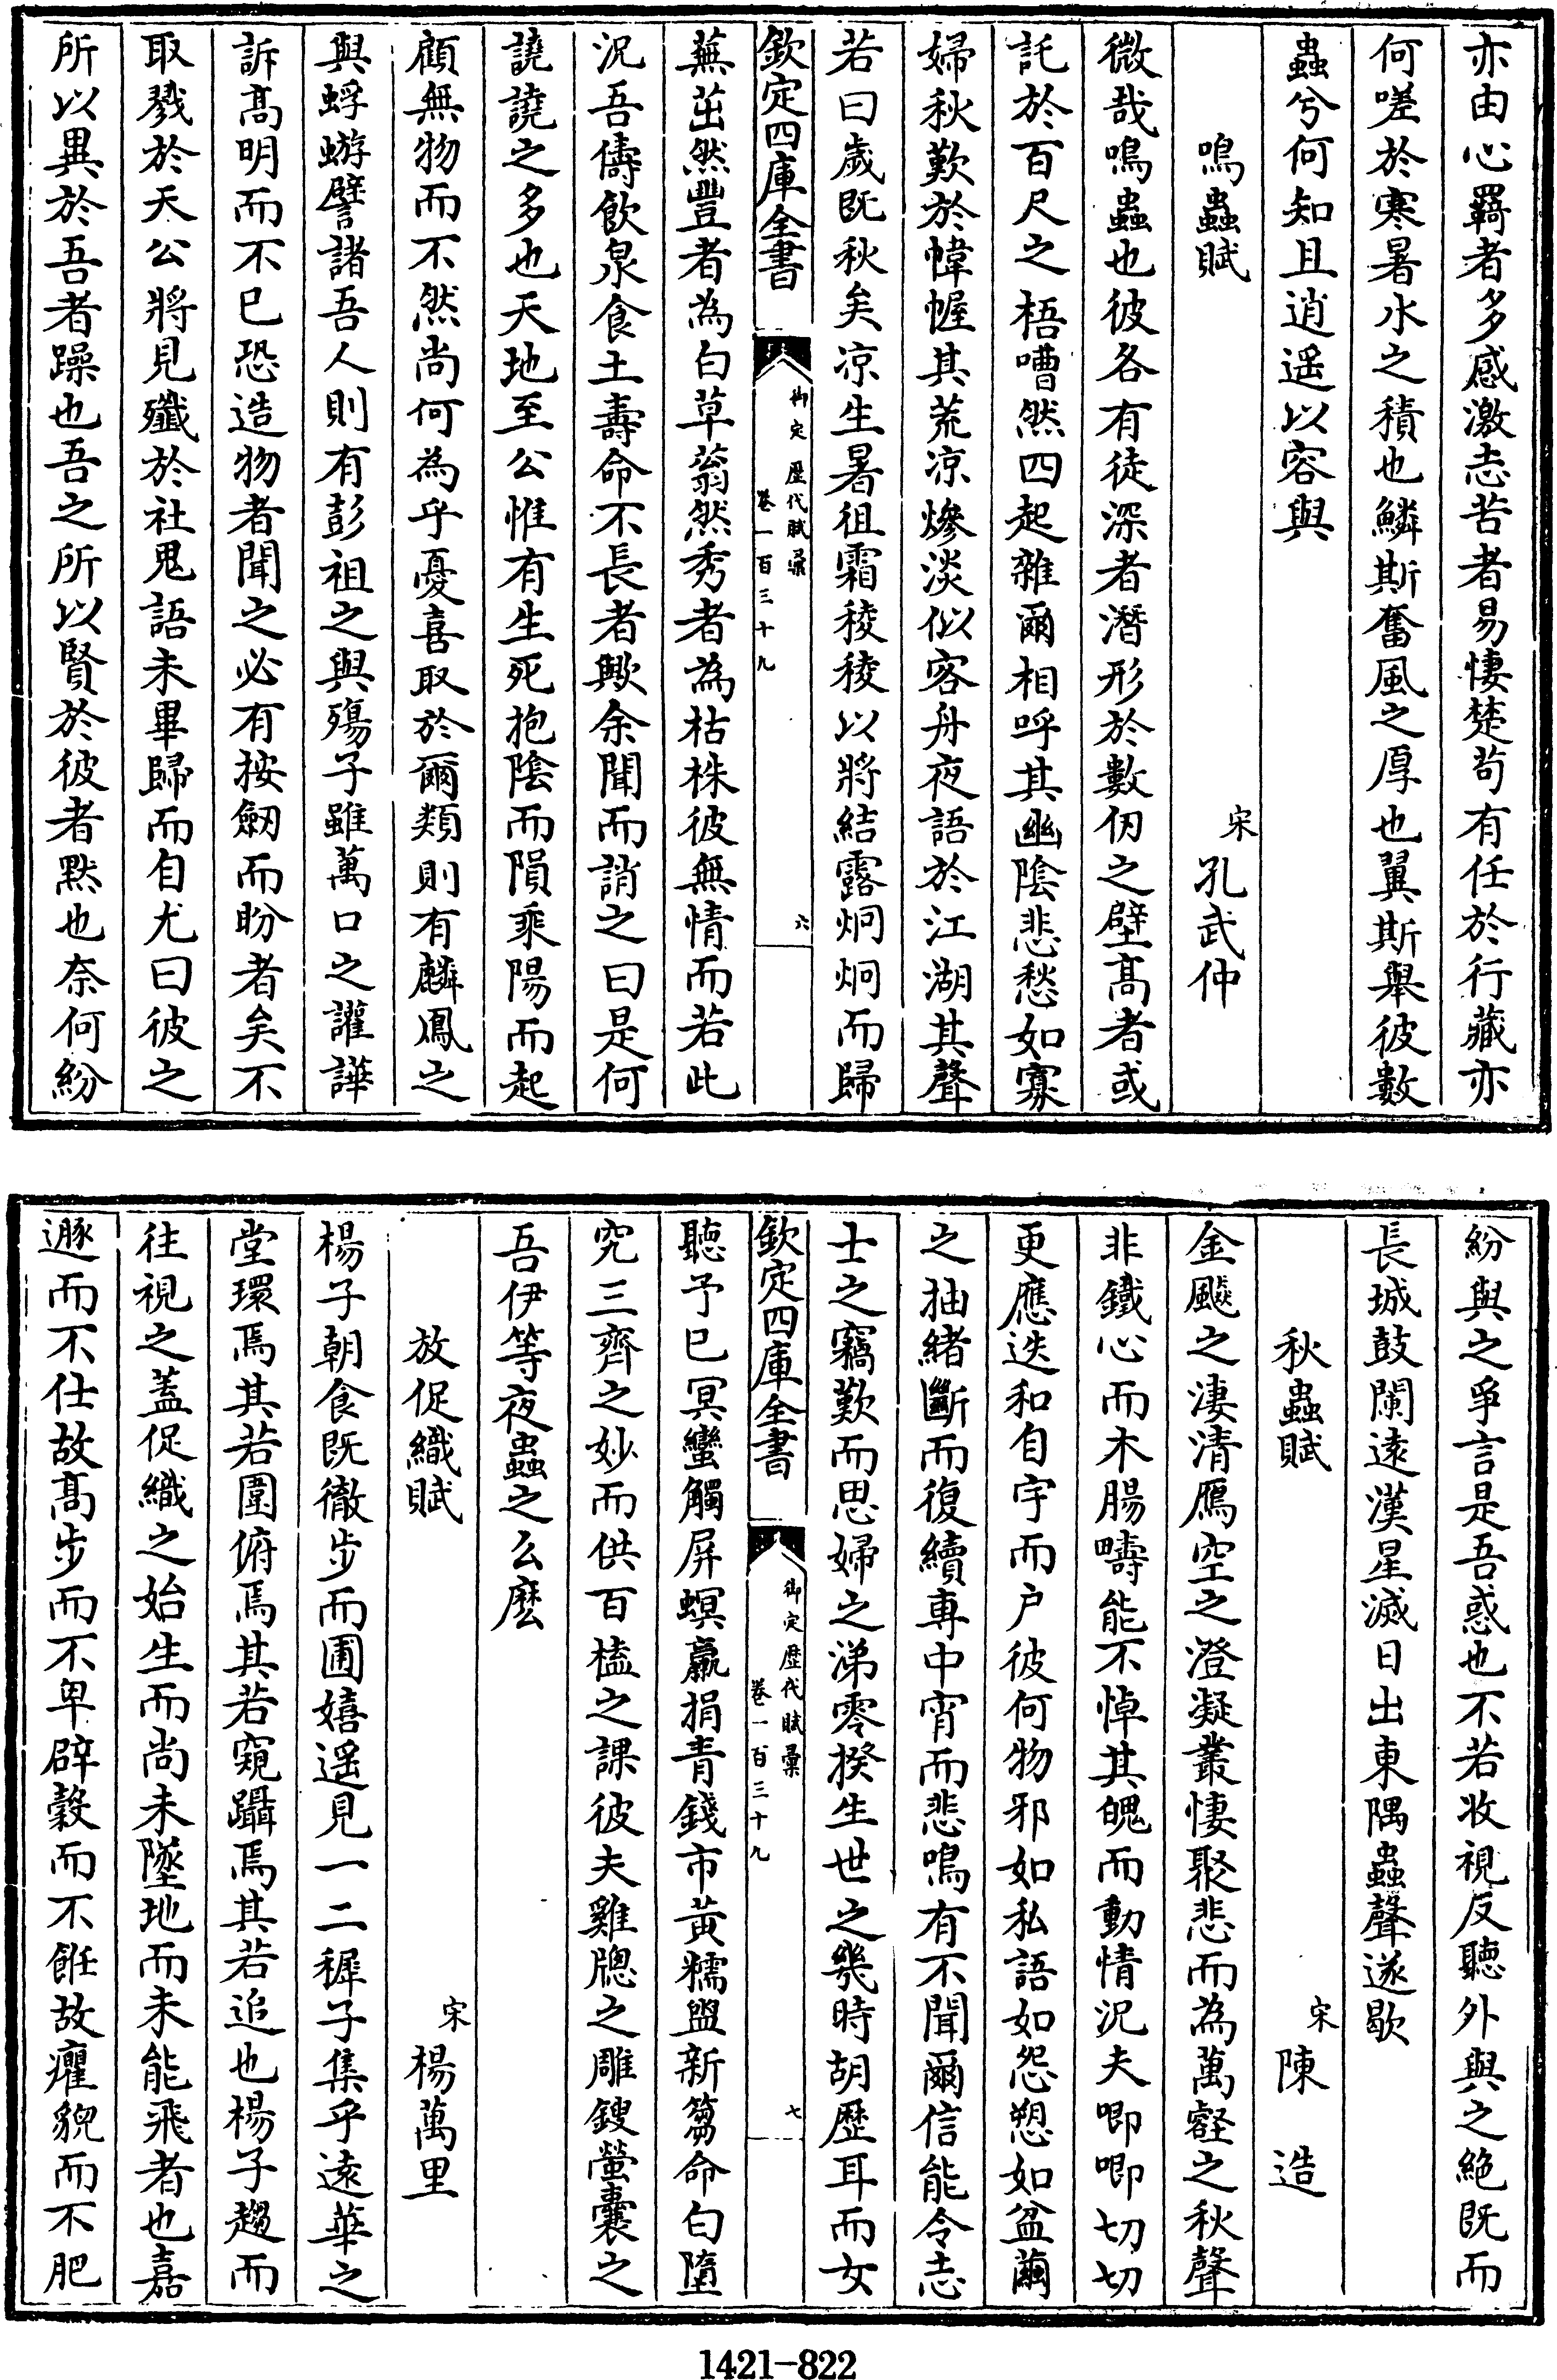 亦由心羇者多感激志苦者易悽楚茍有任於行藏亦
何嗟於寒暑水之積也鱗斯奮風之厚也翼斯舉彼數
蟲兮何知且逍遥以容與
鳴蟲賦
宋孔武仲
微哉鳴蟲也彼各有徒深者潛形於數仞之壁高者或
託於百尺之梧嘈然四起雜爾相呼其幽陰悲愁如寡
婦秋歎於幃幄其荒凉慘淡似客舟夜語於江湖其聲
若曰歲既秋矣凉生暑徂霜稜稜以將結露炯炯而歸
欽定四庫全書
御定歴代賦彙
卷一百三十九
六
蕪茁然豐者為白草蓊然秀者為枯株彼無情而若此
況吾儔飲泉食土壽命不長者歟余聞而誚之曰是何
譊譊之多也天地至公惟有生死抱陰而隕乘陽而起
顧無物而不然尚何為乎憂喜取於爾類則有麟鳳之
與蜉蝣譬諸吾人則有彭祖之與殤子雖萬口之讙譁
訴高明而不已恐造物者聞之必有按劒而盼者矣不
取戮於天公將見殲於社鬼語未畢歸而自尤曰彼之
所以異於吾者躁也吾之所以賢於彼者默也奈何紛
紛與之爭言是吾惑也不若收視反聽外與之絶既而
長城鼓闌遠漢星滅日出東隅蟲聲遂歇
秋蟲賦
宋陳造
金飈之淒清鴈空之澄凝叢悽聚悲而為萬壑之秋聲
非鐵心而木腸疇能不悼其魄而動情況夫唧唧切切
更應迭和自宇而户彼何物邪如私語如怨愬如盆繭
之抽緒斷而復續專中宵而悲鳴有不聞爾信能令志
士之竊歎而思婦之涕零揆生世之幾時胡歴耳而女
欽定四庫全書
御定歴代賦彙
卷一百三十九
七
聽予已冥蠻觸屏螟蠃捐青錢市黄糯盥新芻命白墮
究三齊之妙而供百榼之課彼夫雞牎之雕鎪螢囊之
吾伊等夜蟲之么麽
放促織賦
宋楊萬里
楊子朝食既徹步而圃嬉遥見一二穉子集乎遠華之
堂環焉其若圍俯焉其若窺躡焉其若追也楊子趨而
往視之蓋促織之始生而尚未墜地而未能飛者也嘉
遯而不仕故高步而不卑辟穀而不飪故癯貌而不肥
1421-822